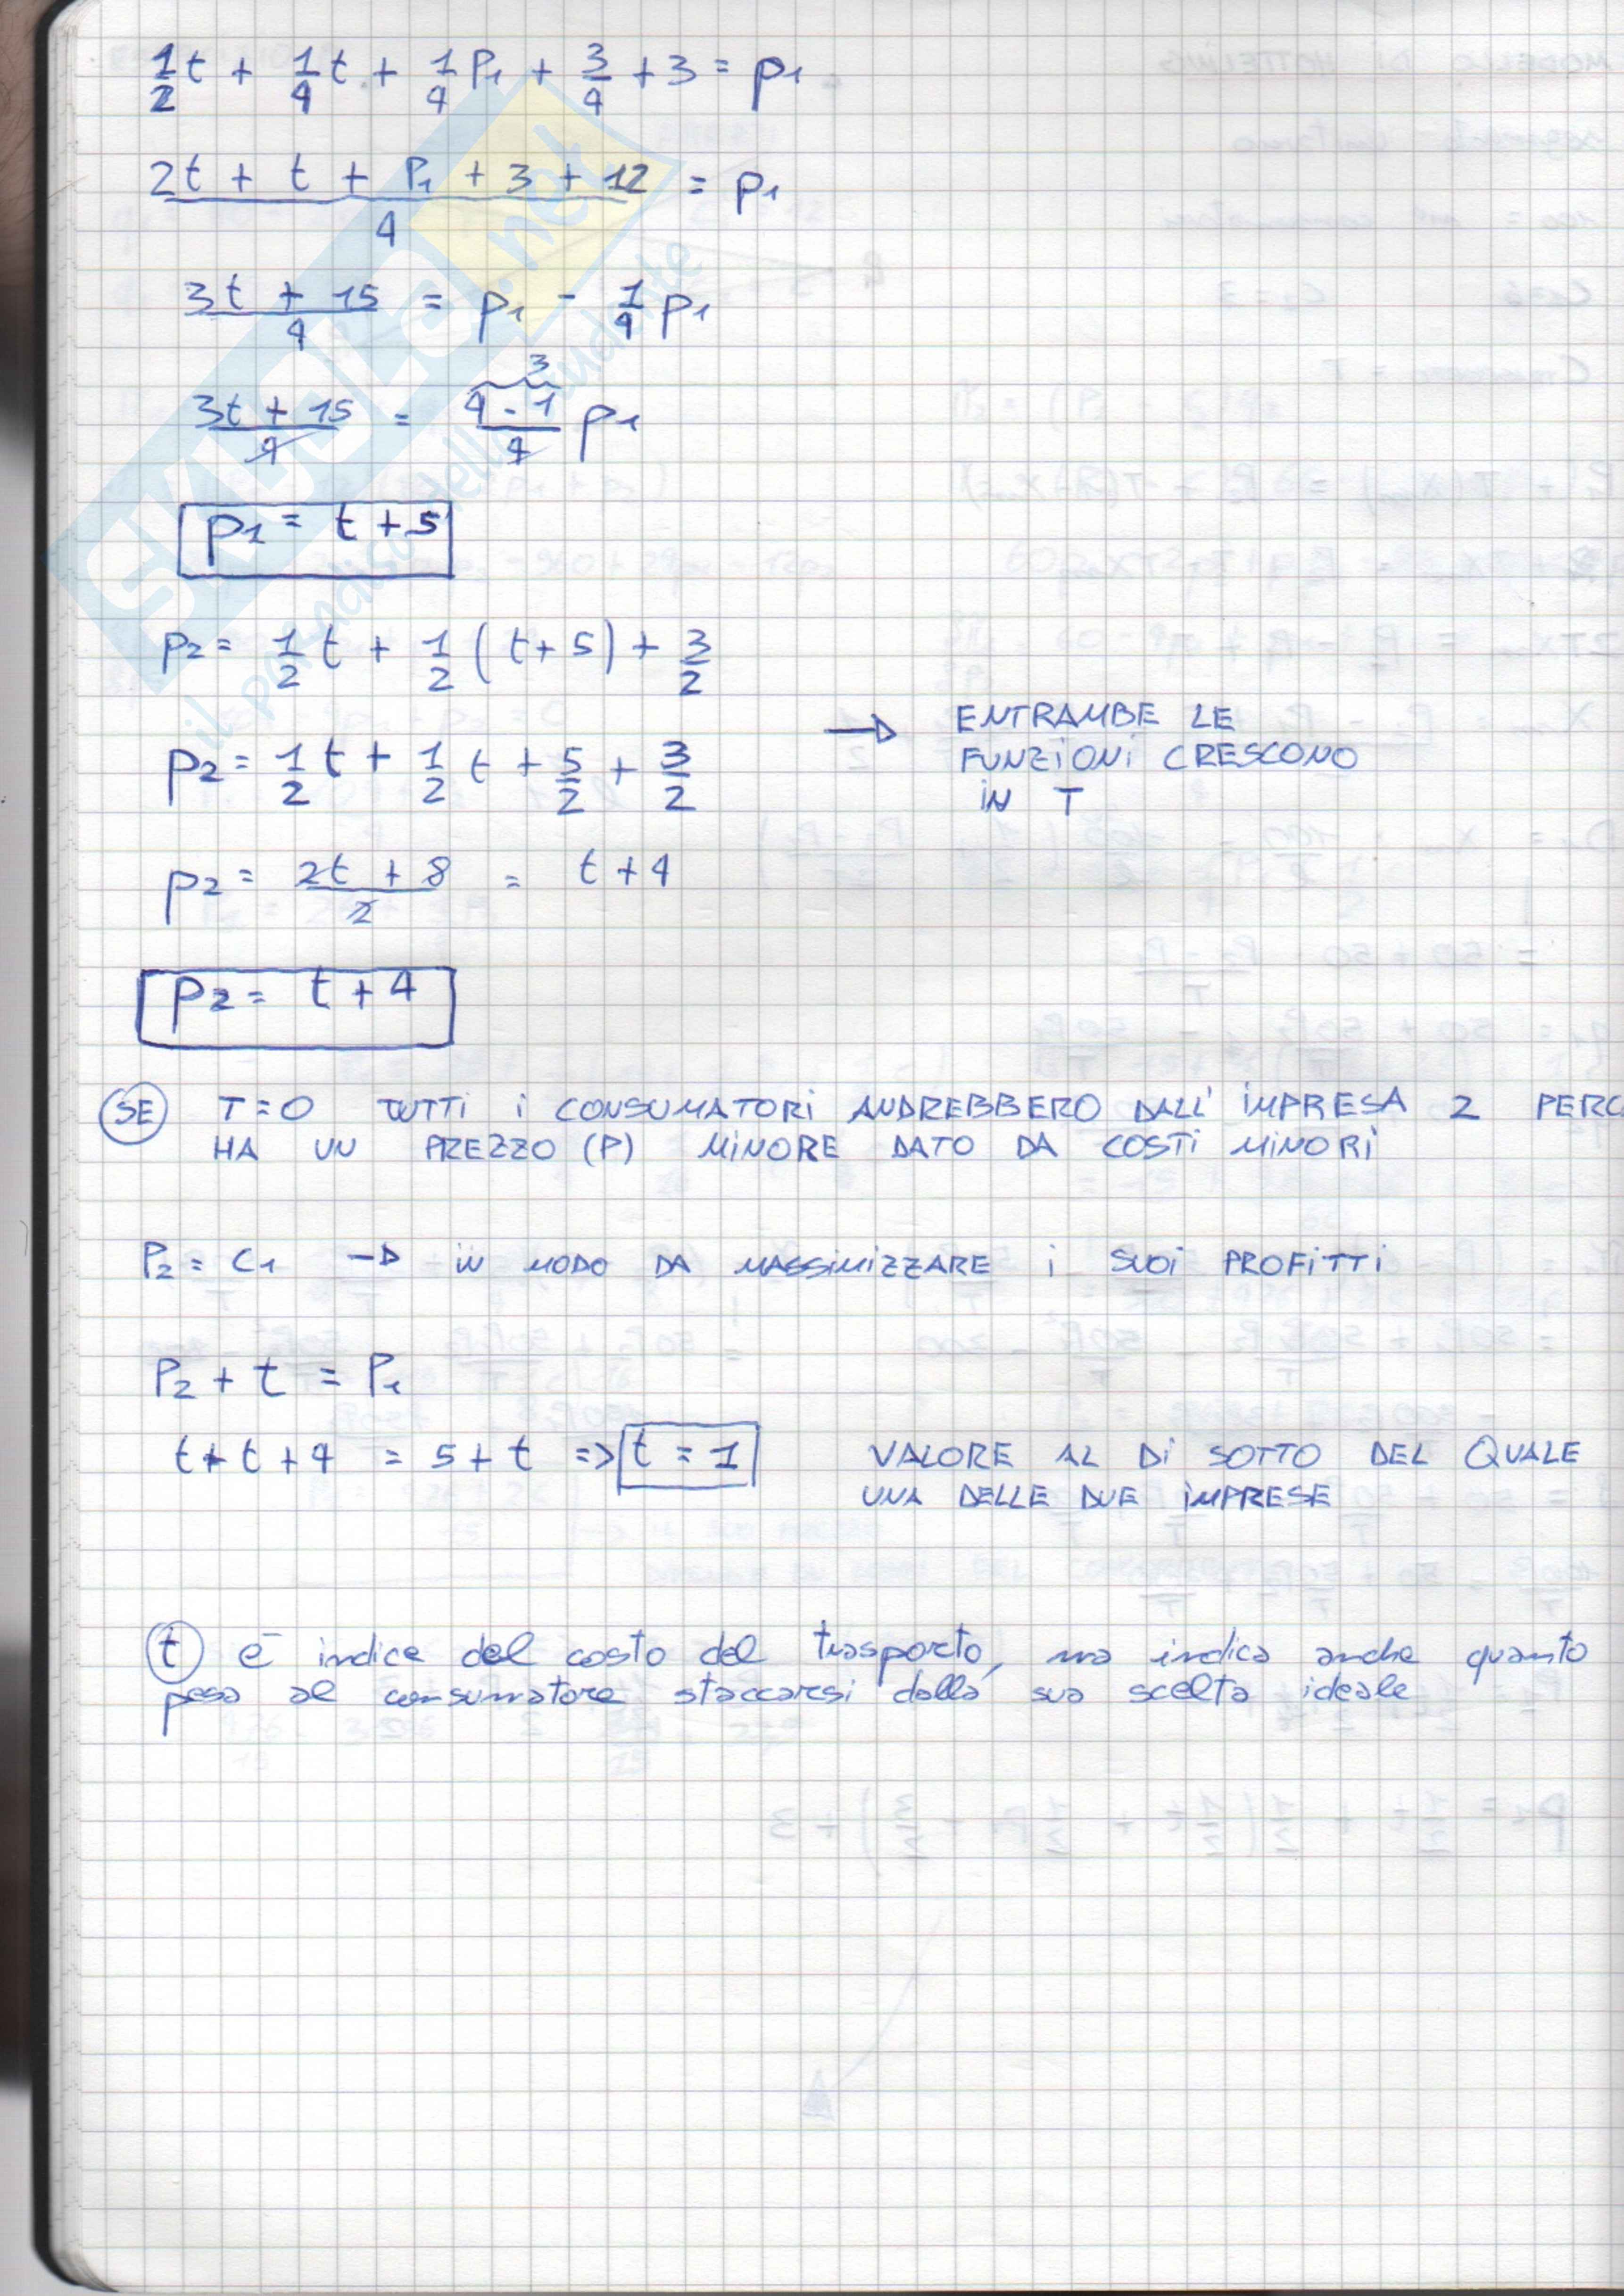 1/2 t + 1/4 t + 1/4 P1 + 3/4 + 3 = p1
2t + t + P1 + 3 + 12 / 4 = p1
3t + 15 / 4 = p1 - 1/4 p1
3
3t + 15 / 4 = 4 - 1 / 4 p1
p1 = t + 5
p2 = 1/2 t + 1/2 ( t + 5 ) + 3/2
p2 = 1/2 t + 1/2 t + 5/2 + 3/2
→ ENTRAMBE LE
FUNZIONI CRESCONO
IN T
p2 = 2t + 8 / 2 = t + 4
p2 = t + 4
SE T = 0 TUTTI I CONSUMATORI ANDREBBERO DALL' IMPRESA 2 PERC
HA UN PREZZO (P) MINORE DATO DA COSTI MINORI
P2 = C1 → IN MODO DA MASSIMIZZARE I SUOI PROFITTI
P2 + t = P1
t + t + 4 = 5 + t => t = 1 VALORE AL DI SOTTO DEL QUALE
UNA DELLE DUE IMPRESE
t è indice del costo del trasporto, ma indica anche quanto
pesa al consumatore staccarsi dalla sua scelta ideale
SKUOLA.net
il paradiso dello studente